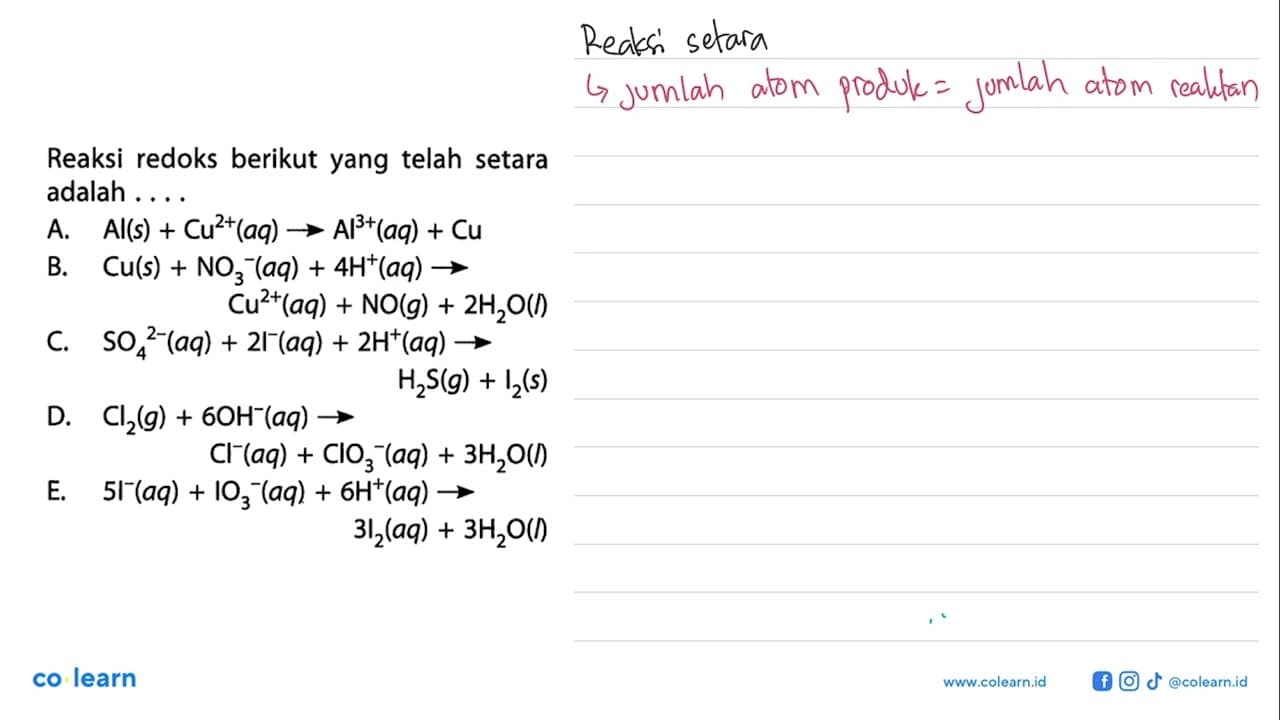 Reaksi setara
↳ jumlah atom produk = jumlah atom reaktan
Reaksi redoks berikut yang telah setara
adalah . . . .
A. Al(s) + Cu²⁺(aq) → Al³⁺(aq) + Cu
B. Cu(s) + NO₃⁻(aq) + 4H⁺(aq) →
Cu²⁺(aq) + NO(g) + 2H₂O(l)
C. SO₄²⁻(aq) + 2I⁻(aq) + 2H⁺(aq) →
H₂S(g) + I₂(s)
D. Cl₂(g) + 6OH⁻(aq) →
Cl⁻(aq) + ClO₃⁻(aq) + 3H₂O(l)
E. 5I⁻(aq) + IO₃⁻(aq) + 6H⁺(aq) →
3I₂(aq) + 3H₂O(l)
co learn
www.colearn.id
@colearn.id